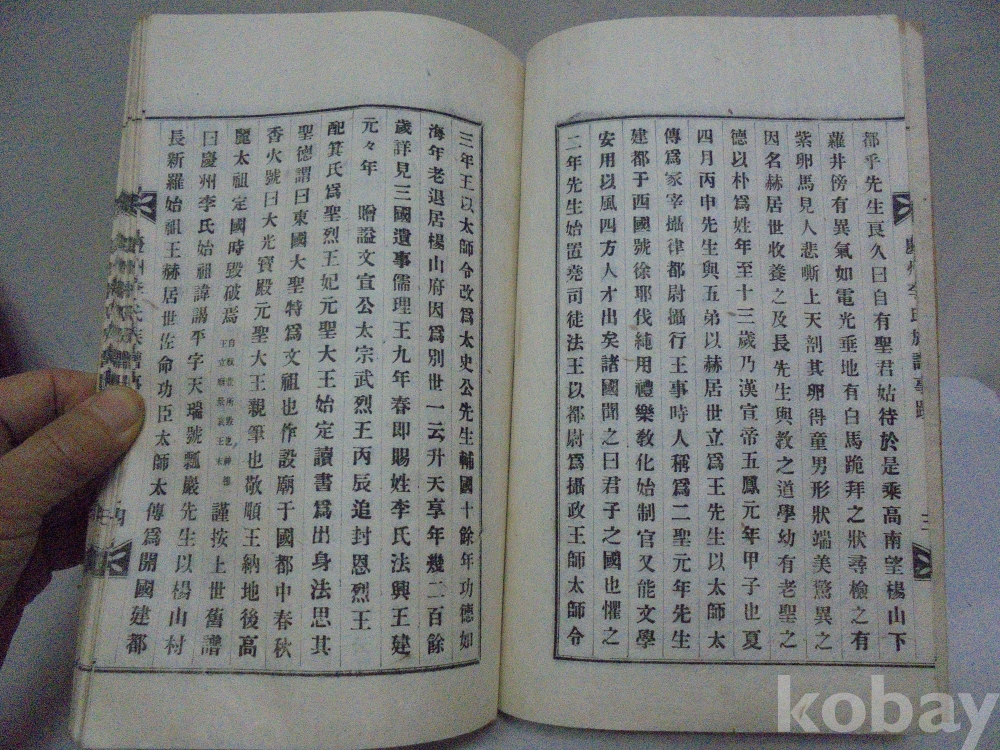 都乎先生良久曰自有聖君姑待於是乘高南望楊山下
蘿井傍有異氣如電光垂地有白馬跪拜之狀尋檢之有
紫卵馬見人悲嘶上天剖其卵得童男形狀端美驚異之
因名赫居世收養之及長先生與教之道學幼有老聖之
德以朴爲姓年至十三歲乃漢宣帝五鳳元年甲子也夏
四月丙申先生與五弟以赫居世立爲王先生以太師太
傳爲冢宰攝律都尉攝行王事時人稱爲二聖元年先生
建都于西國號徐耶伐純用禮樂教化始制官又能文學
安用以風四方人才出矣諸國聞之曰君子之國也懼之
二年先生始置堯司徒法王以都尉爲攝政王師太師令
三年王以太師令改爲太史公先生輔國十餘年功德如
海年老退居楊山府因爲別世一云升天享年幾二百餘
歲詳見三國遺事儒理王九年春即賜姓李氏法興王建
元々年 贈謚文宣公太宗武烈王丙辰追封恩烈王
配箕氏爲聖烈王妃元聖大王始定讀書爲出身法思其
聖德謂曰東國大聖特爲文祖也作設廟于國都中春秋
香火號曰大光寶殿元聖大王親筆也敬順王納地後高
麗太祖定國時毀破焉 謹按上世舊譜
曰慶州李氏始祖諱謁平字天瑞號瓢巖先生以楊山村
長新羅始祖王赫居世佐命功臣太師太傳爲開國建都
kobay